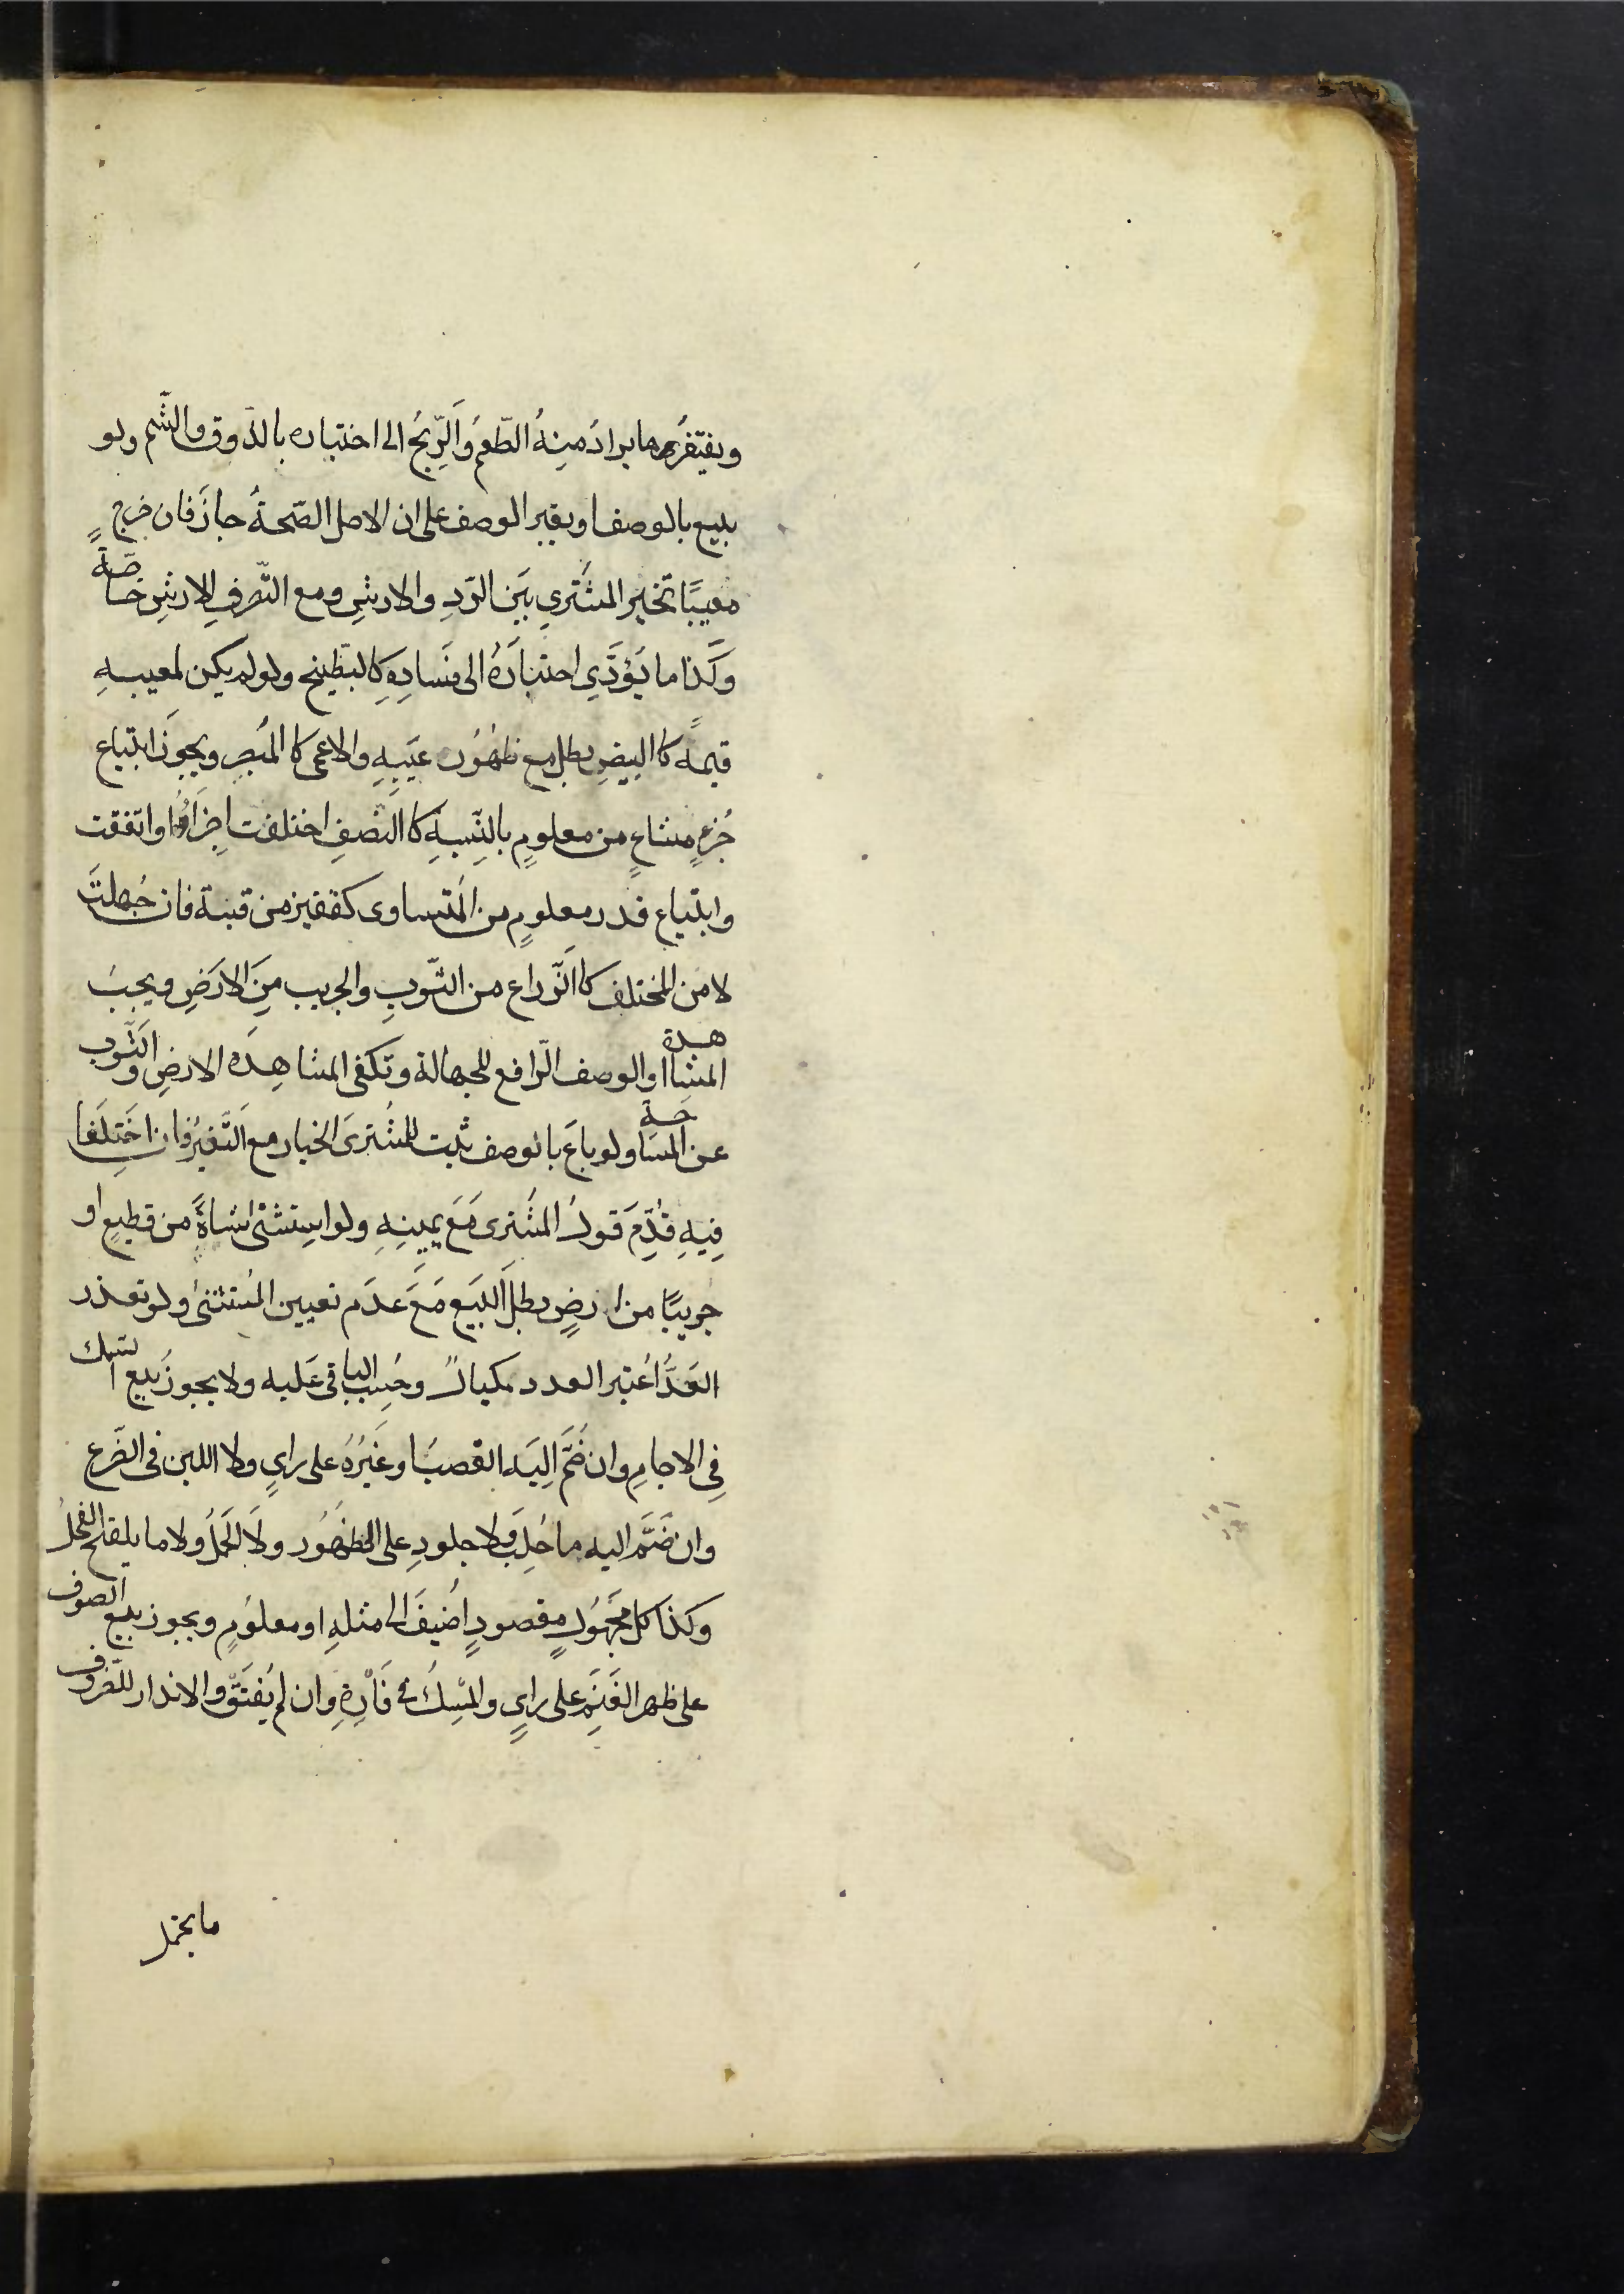 ويفتقر ما يرادُ مِنهُ الطّعمُ وَالرّيحُ الى اختباره بالذوق والشّم ولو
بيع بالوصف او بغير الوصف على ان الاصل الصّحةُ جازَ فان خرج
معيبًا تخير المشتَري بيَن الرّدِ والارشِ ومع التّصرفِ الارشِ خاصّة
وَكَذا ما يَؤدَّي اختبارَهُ الى فسادِهِ كالبَطّيخ ولو لم يكن لمعيبهِ
قيمةً كاالبيضِ بطل مع ظهُوُره عَيبِهِ والاعمى كاالمُبصِرِ ويجوزُ ابتياع
جُزءٍ مشاعٍ من معلومٍ بالنِّسبةِ كاالنصفِ اختلفت اجزاؤُه او اتفقت
وابتياع قدر معلومٍ من المُتساوى كقفيز من قبة فان جُهلتَ
لا من المختلف كاالذّراع من الثّوبِ والجريب مِنَ الارَضِ ويجبُ
المشاهدة او الوصف الرّافع للجهالة وتكفى المشاهِدَه الارضِ والثّوب
عن المَساحَةِ ولو باعَ بالوصف ثبت للمُشترىَ الخيار مع التَّغيُر فان اختَلَفا
فِيهِ قُدِّمَ قولُ المشُترى مَعَ يمِينِهِ ولو استثنى شاةً من قطيعٍ او
جريبًا من ارضٍ بطل البَيَع مَعَ عدَم تعيين المُستثنىٰ ولو تعذر
العَدُّ اُعتبر العدد بمكيالٍ وحُسِب الباقى عَليه ولا يجوزُ بيع السّمك
فِي الاجامِ وان ضُمَّ اليَه القصبُ او غَيُرُهُ على رايٍ ولا اللبن فى الضّرع
وان ضَمَّ اليه ما حُلِبَ ولا جلودِ على الظهُور ولَا الحَمَلُ ولا ما يلقح الفحلُ
وكذا كل مجَهُوُلٍ مقصودٍ اُضيفَ الى مثلهِ او معلوُمٍ ويجوز بيع الصوف
على ظهر الغَنَمِ على رايٍ والمسِكُ في فَأرةِ وان لم يُفتَق والاندار للظّروف
ما يحتمل